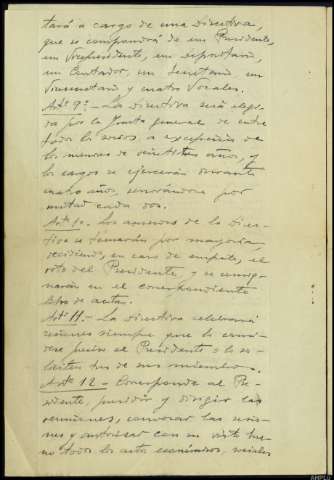 tará a cargo de una Directiva,
que se compondrá de un Presidente,
un Vicepresidente, un Depositario,
un Contador, un Secretario, un
Vicesecretario y cuatro Vocales.
Artº 9º.- La directiva será elegi-
da por la Junta general de entre
todos los socios, a excepción de
los menores de veintitrés años, y
los cargos se ejercerán durante
cuatro años, renovándose por
mitad cada dos.
Artº 10. Los acuerdos de la Direc-
tiva se tomarán por mayoría,
decidiendo, en caso de empate, el
voto del Presidente, y se consig-
narán en el correspondiente
libro de actas.
Artº 11.- La Directiva celebrará
sesiones siempre que lo consi-
dere preciso el Presidente o lo so-
liciten tres de sus miembros.
Artº 12.- Corresponde al Pre-
sidente, presidir y dirigir las
reuniones, convocar las mis-
mas y autorizar con su visto bue-
no todos los actos económicos, sociales